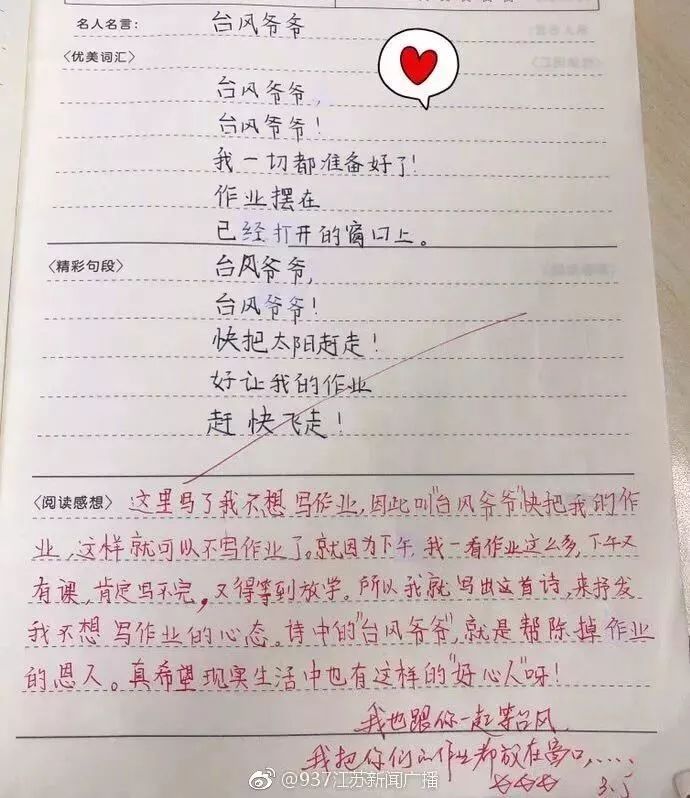 名人名言： 台风爷爷
〈优美词汇〉
台风爷爷，
台风爷爷！
我一切都准备好了！
作业摆在
已经打开的窗口上。
〈精彩句段〉 台风爷爷，
台风爷爷！
快把太阳赶走！
好让我的作业
赶快飞走！
〈阅读感想〉 这里写了我不想写作业，因此叫"台风爷爷"快把我的作
业，这样就可以不写作业了。就因为下午，我一看作业这么多，下午又
有课，肯定写不完，又得等到放学。所以我就写出这首诗，来抒发
我不想写作业的心态。诗中的"台风爷爷"，就是帮除掉作业
的恩人。真希望现实生活中也有这样的"好心人"呀！
我也跟你一起等台风
我把你们的作业都放在窗口，……
3.5
@937江苏新闻广播